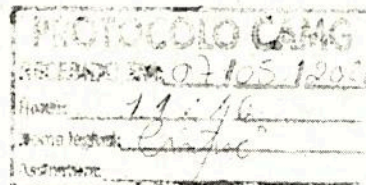 PROTOCOLO CAMG
RECEBIDO EM 07/05/200
Hora: 11:46
Nome legível:
Assinatura: